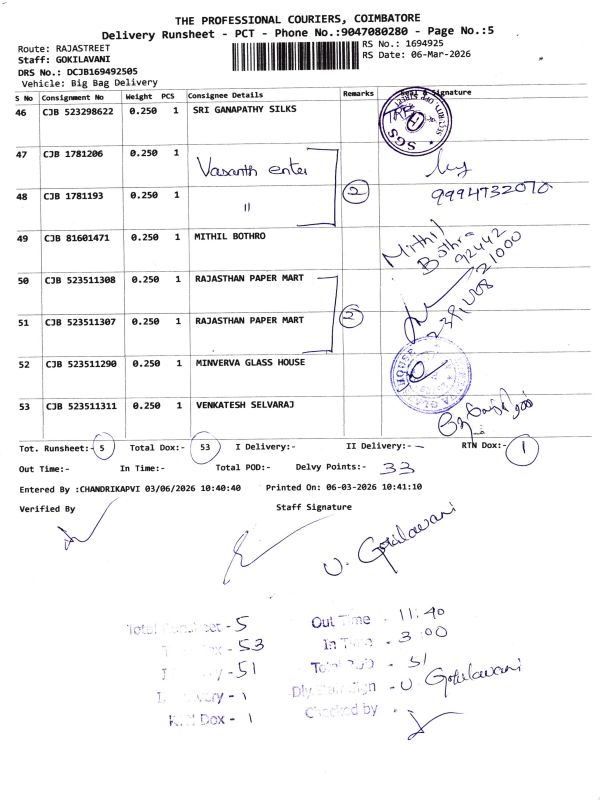 THE PROFESSIONAL COURIERS, COIMBATORE
Delivery Runsheet - PCT - Phone No.:9047080280 - Page No.:5
Route: RAJASTREET
RS No.: 1694925
Staff: GOKILAVANI
RS Date: 06-Mar-2026
DRS No.: DCJB169492505
Vehicle: Big Bag Delivery
S No Consignment No Weight PCS Consignee Details Remarks Signature
46 CJB 523298622 0.250 1 SRI GANAPATHY SILKS
SGS
47 CJB 1781206 0.250 1 Vasanth enter
48 CJB 1781193 0.250 1 " 2 9994732070
49 CJB 81601471 0.250 1 MITHIL BOTHRO
Mithil
Bothra
92442
21000
50 CJB 523511308 0.250 1 RAJASTHAN PAPER MART
51 CJB 523511307 0.250 1 RAJASTHAN PAPER MART 2
52 CJB 523511290 0.250 1 MINVERVA GLASS HOUSE
53 CJB 523511311 0.250 1 VENKATESH SELVARAJ
Tot. Runsheet:- 5 Total Dox:- 53 I Delivery:- II Delivery:- RTN Dox:- 1
Out Time:- In Time:- Total POD:- Delvy Points:- 33
Entered By :CHANDRIKAPVI 03/06/2026 10:40:40 Printed On: 06-03-2026 10:41:10
Verified By Staff Signature
U. Gokilavani
Total Runsheet - 5 Out Time - 11:40
Dox - 53 In Time - 3:00
- 51 Total POD - 51
- 1 Dly. Sign - U Gokilavani
Dox - 1 Checked by -